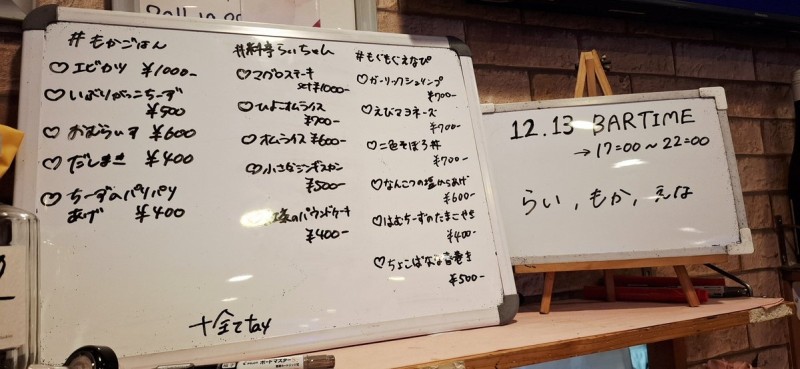 #もかごはん
♡エビカツ ¥1000-
♡いぶりがっこちーず
¥500
♡おむらいす ¥600
♡だしまき ¥400
♡ちーずのパリパリ
あげ ¥400
#料亭らいちゃん
♡マグロステーキ
set¥1000-
♡ひよこオムライス
¥900-
♡オムライス ¥600-
♡小さなジンギスカン
¥500-
のパウンドケーキ
¥400-
#もぐもぐえなぴ
♡ガーリックシュリンプ
¥700-
♡えびマヨネーズ
¥700-
♡二色そぼろ丼
¥700-
♡なんこつの塩からあげ
¥600-
♡はむちーずのたまごやき
¥400-
♡ちょこばななな春巻き
¥500-
十全てtax
12.13 BARTIME
→17:00~22:00
らい, もか, えな